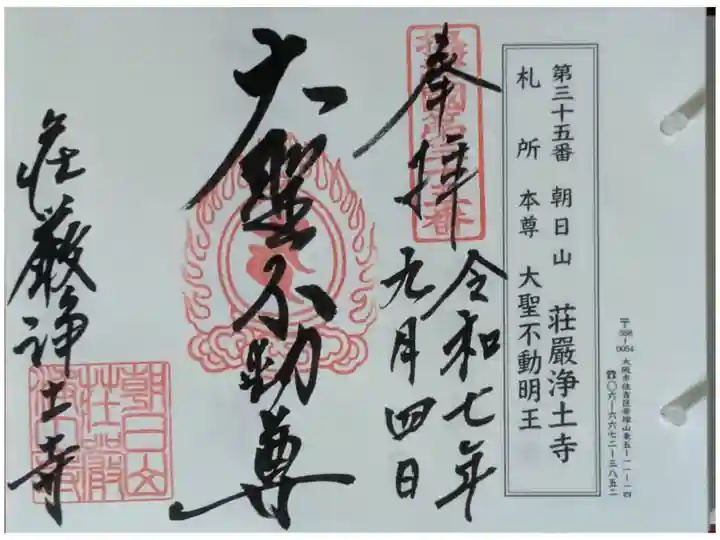 第三十五番 朝日山 荘嚴浄土寺
札所本尊 大聖不動明王
〒558-0054 大阪市住吉区帝塚山東五-一一-一四
☎〇六-六六七二-三八五二
奉拝
令和七年
九月四日
大聖不動尊
荘厳浄土寺